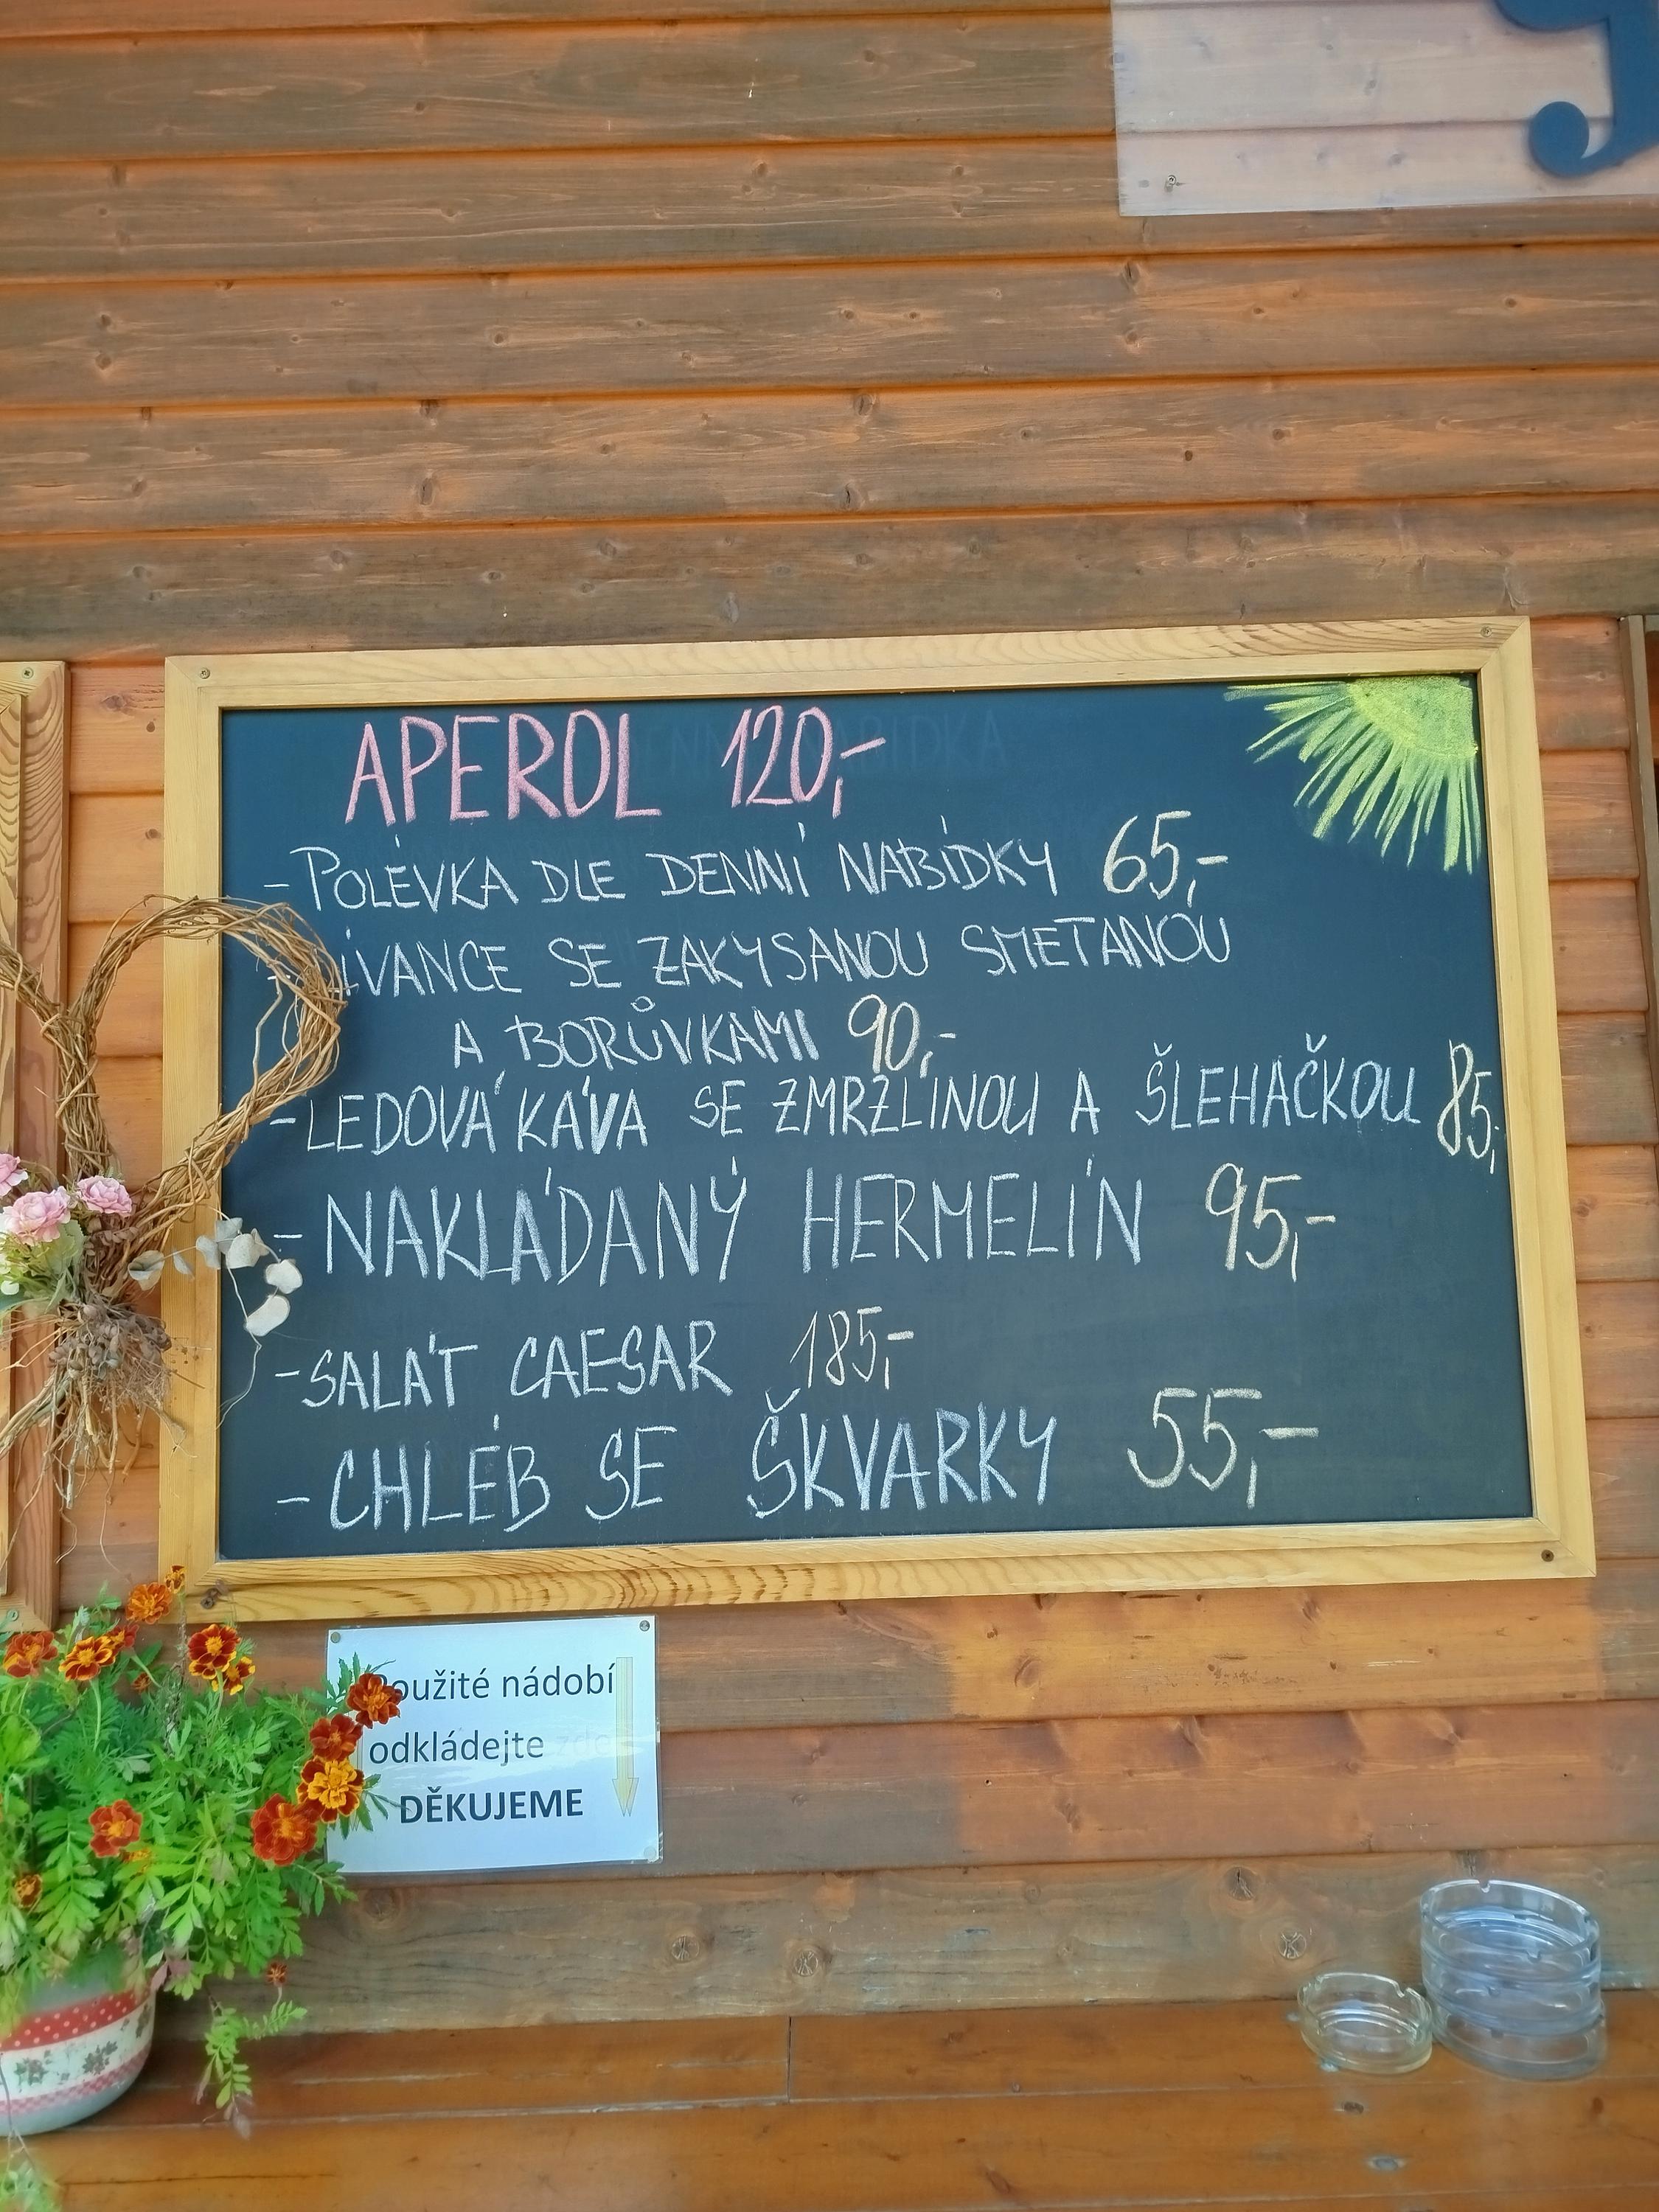 APEROL 120,-
- POLÉVKA DLE DENNÍ NABÍDKY 65,-
- LÍVANCE SE ZAKYSANOU SMETANOU
A BORŮVKAMI 90,-
- LEDOVÁ KÁVA SE ZMRZLINOU A ŠLEHAČKOU 85,
- NAKLÁDANÝ HERMELÍN 95,-
- SALÁT CAESAR 185,-
- CHLÉB SE ŠKVARKY 55,-
Použité nádobí
odkládejte zde
DĚKUJEME